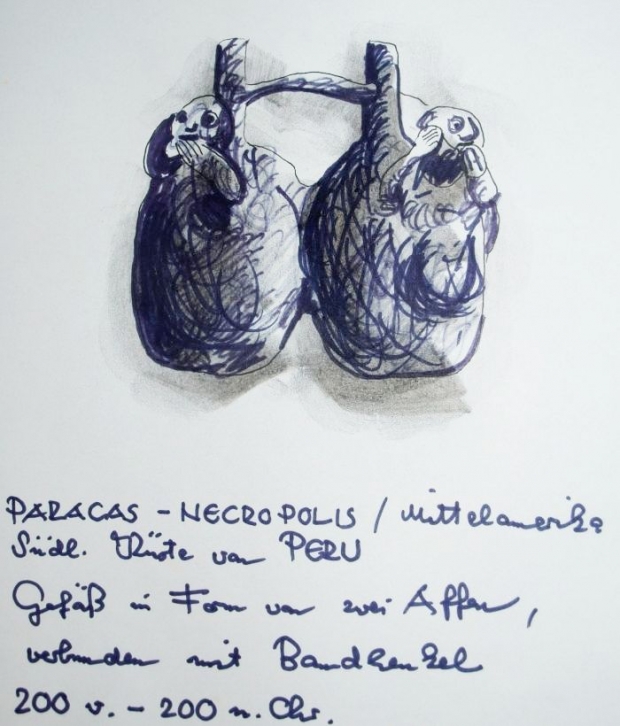 PARACAS - NECROPOLIS / Mittelamerika
Südl. Küste von PERU
Gefäß in Form von zwei Affen,
verbunden mit Bandhenkel
200 v. - 200 n. Chr.